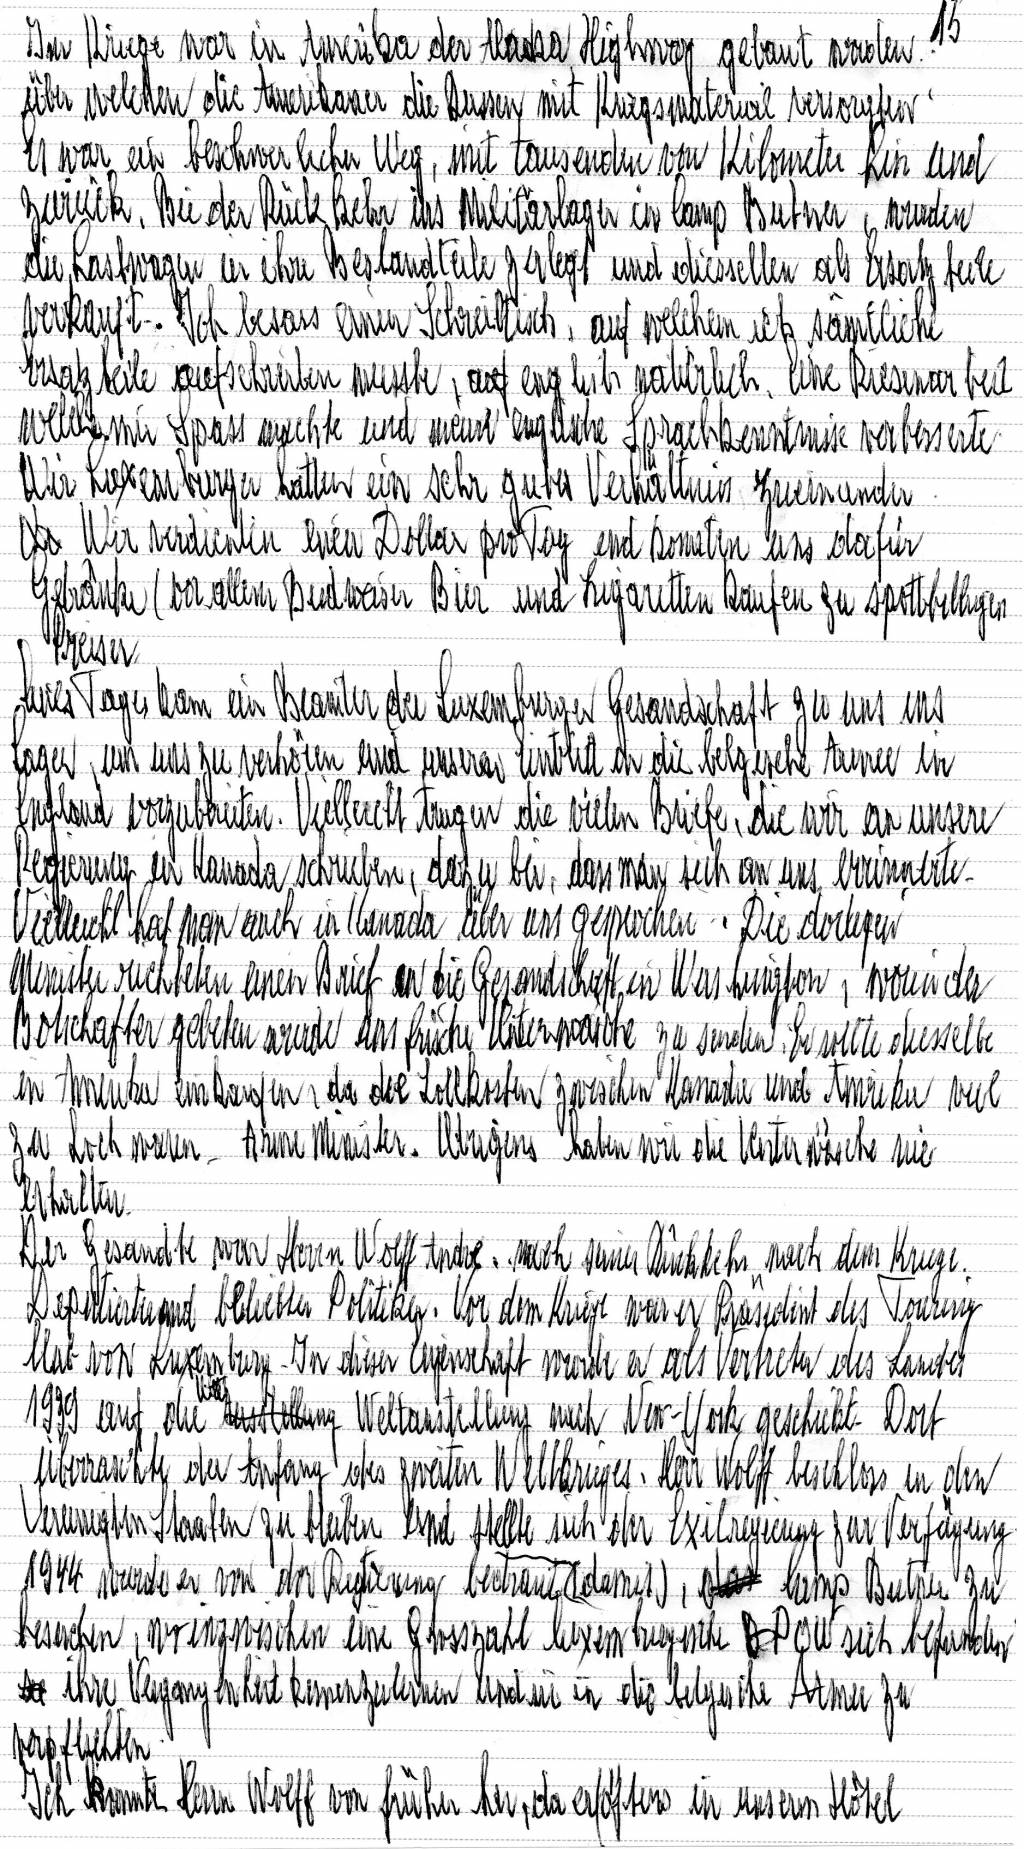 15
Im Kriege war in Amerika der Alaska Highway gebaut worden.
über welchen die Amerikaner die Russen mit Kriegsmaterial versorgten.
Es war ein beschwerlicher Weg, mit tausenden von Kilometer hin und
zurück. Bei der Rückkehr ins Militärlager in Camp Butner, wurden
die Lastwagen in ihre Bestandteile zerlegt und diesselben als Ersatzteile
verkauft. Ich besass einen Schreibtisch, auf welchem ich sämtliche
Ersatzteile aufschreiben musste, auf englisch natürlich. Eine Riesenarbeit
welche mir Spass machte und meine englische Sprachkenntnisse verbesserte.
Wir Luxemburger hatten ein sehr gutes Verhältnis zueinander.
Wir verdienten einen Dollar pro Tag und konnten uns dafür
Getränke (vor allem Budweiser Bier und Zigaretten kaufen zu spottbilligen
Preisen
Eines Tages kam ein Beamter der Luxemburger Gesandschaft zu uns ins
Lager, um uns zu verhören und unseren Eintritt in die belgische Armee in
England vorzubereiten. Vielleicht trugen die vielen Briefe, die wir an unsere
Regierung in Kanada schrieben, dazu bei, dass man sich an uns erinnerte.
Vielleicht hat man auch in Kanada über uns gesprochen. Die dortigen
Minister schickten einen Brief an die Gesandschaft in Washington, worin der
Botschafter gebeten wurde uns frische Unterwäsche zu senden. Er sollte diesselbe
in Amerika einkaufen, da die Zollkosten zwischen Kanada und Amerika viel
zu hoch waren. Arme Minister. Übrigens haben wir die Unterwäsche nie
erhalten.
Der Gesandte war Herrn Wolff André. nach seiner Rückkehr nach dem Kriege.
Deputierter und beliebter Politiker. Vor dem Kriege war er Präsident des Touring
Club von Luxemburg. In dieser Eigenschaft wurde er als Vertreter des Landes
1939 auf die Weltausstellung nach New-York geschickt. Dort
überraschte der Anfang des zweiten Weltkrieges. Herr Wolff beschloss in den
Vereinigten Staaten zu bleiben und stellte sich der Exilregierung zur Verfügung
1944 wurde er von der Regierung betraut (damit), Camp Butner zu
besuchen, wo inzwischen eine Grosszahl luxemburgische POW sich befanden
ihre Vergangenheit kennenzulernen und sie in die belgische Armee zu
verpflichten.
Ich kannte Herrn Wolff von früher her, da er öfters in unserm Hôtel